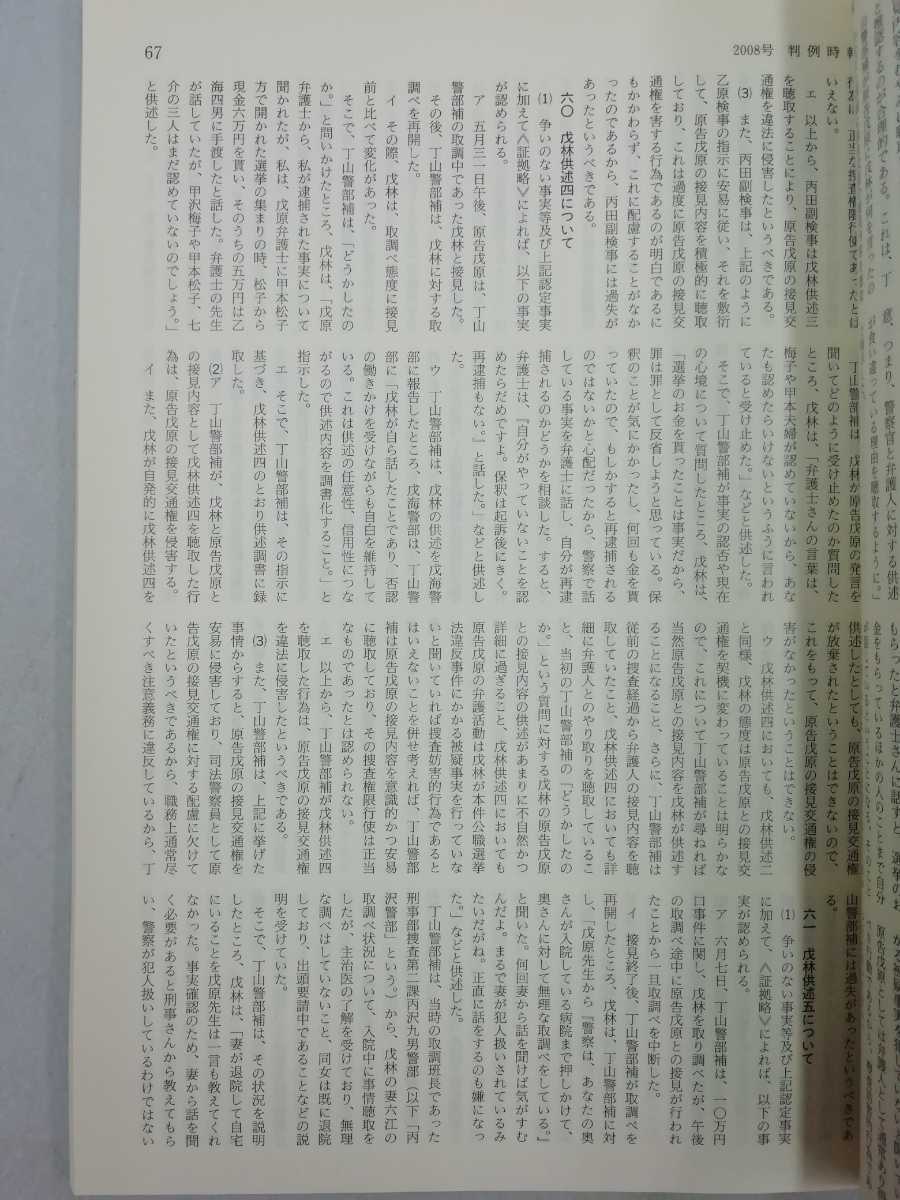 67
2008号 判例時
いえない。
エ 以上から、丙田副検事は戊林供述三
を聴取することにより、原告戊原の接見交
通権を違法に侵害したというべきである。
⑶ また、丙田副検事は、上記のように
乙原検事の指示に安易に従い、それを敷衍
して、原告戊原の接見内容を積極的に聴取
しており、これは過度に原告戊原の接見交
通権を害する行為であるのが明白であるに
もかかわらず、これに配慮することがなか
ったのであるから、丙田副検事には過失が
あったというべきである。
六〇 戊林供述四について
⑴ 争いのない事実等及び上記認定事実
に加えて〈証拠略〉によれば、以下の事実
が認められる。
ア 五月三一日午後、原告戊原は、丁山
警部補の取調中であった戊林と接見した。
その後、丁山警部補は、戊林に対する取
調べを再開した。
イ その際、戊林は、取調べ態度に接見
前と比べて変化があった。
そこで、丁山警部補は、「どうかしたの
か。」と問いかけたところ、戊林は、「戊原
弁護士から、私が逮捕された事実について
聞かれたが、私は、戊原弁護士に甲本松子
方で開かれた選挙の集まりの時、松子から
現金六万円を貰い、そのうちの五万円は乙
海四男に手渡したと話した。弁護士の先生
が話していたが、甲沢梅子や甲本松子、七
介の三人はまだ認めていないのでしょう。」
と供述した。
丁山警部補は、戊林が原告戊原の発言を
聞いてどのように受け止めたのか質問した
ところ、戊林は、「弁護士さんの言葉は、
梅子や甲本夫婦が認めてないから、あな
たも認めたらいけないというふうに言われ
ていると受け止めた。」などと供述した。
そこで、丁山警部補が事実の認否や現在
の心境について質問したところ、戊林は、
「選挙のお金を貰ったことは事実だから、
罪は罪として反省しようと思っている。保
釈のことが気にかかったし、何回も金を貰
っていたので、もしかすると再逮捕される
のではないかと心配だったから、警察で話
している事実を弁護士に話し、自分が再逮
捕されるのかどうかを相談した。すると、
弁護士は、『自分がやっていないことを認
めたらだめですよ。保釈は起訴後にきく。
再逮捕もない。』と話した。」などと供述し
た。
ウ 丁山警部補は、戊林の供述を戊海警
部に報告したところ、戊海警部は、丁山警
部に「戊林が自ら話したことであり、否認
の働きかけを受けながらも自白を維持して
いる。これは供述の任意性、信用性につな
がるので供述内容を調書化すること。」と
指示した。
エ そこで、丁山警部補は、その指示に
基づき、戊林供述四のとおり供述調書に録
取した。
⑵ア 丁山警部補が、戊林と原告戊原と
の接見内容として戊林供述四を聴取した行
為は、原告戊原の接見交通権を侵害する。
イ また、戊林が自発的に戊林供述四を
供述したとしても、原告戊原の接見交通権
が放棄されたということはできないので、
これをもって、原告戊原の接見交通権の侵
害がなかったということはできない。
ウ 戊林供述四においても、戊林供述二
と同様、戊林の態度は原告戊原との接見交
通権を契機に変わっていることは明らかな
ので、これについて丁山警部補が尋ねれば
当然原告戊原との接見内容を戊林が供述す
ることになること、さらに、丁山警部補は
従前の捜査経過から弁護人の接見内容を聴
取していたこと、戊林供述四においても詳
細に弁護人とのやり取りを聴取しているこ
と、当初の丁山警部補の「どうかしたの
か。」という質問に対する戊林の原告戊原
との接見内容の供述があまりに不自然かつ
詳細に過ぎること、戊林供述四においても
原告戊原の弁護活動は戊林が本件公職選挙
法違反事件にかかる被疑事実を行っていな
いと聞いていれば捜査妨害的行為であると
はいえないことを併せ考えれば、丁山警部
補は原告戊原の接見内容を意識的かつ安易
に聴取しており、その捜査権限行使は正当
なものであったとは認められない。
エ 以上から、丁山警部補が戊林供述四
を聴取した行為は、原告戊原の接見交通権
を違法に侵害したというべきである。
⑶ また、丁山警部補は、上記に挙げた
事情からすると、原告戊原の接見交通権を
安易に侵害しており、司法警察員として原
告戊原の接見交通権に対する配慮に欠けて
いたというべきであるから、職務上通常尽
くすべき注意義務に違反しているから、丁
山警部補には過失があったというべきであ
る。
六一 戊林供述五について
⑴ 争いのない事実等及び上記認定事実
に加えて、〈証拠略〉によれば、以下の事
実が認められる。
ア 六月七日、丁山警部補は、一〇万円
口事件に関し、戊林を取り調べたが、午後
の取調べ途中に原告戊原との接見が行われ
たことから一旦取調べを中断した。
イ 接見終了後、丁山警部補が取調べを
再開したところ、戊林は、丁山警部補に対
し、「戊原先生から『警察は、あなたの奥
さんが入院している病院まで押しかけて、
奥さんに対して無理な取調べをしている。』
と聞いた。何回妻から話を聞けば気がすむ
んだよ。まるで妻が犯人扱いされているみ
たいだがね。正直に話をするのも嫌になっ
た。」などと供述した。
丁山警部補は、当時の取調班長であった
刑事部捜査第二課丙沢九男警部（以下「丙
沢警部」という。）から、戊林の妻六江の
取調べ状況について、入院中に事情聴取を
したが、主治医の了解を受けており、無理
な調べはしていないこと、同女は既に退院
しており、出頭要請中であることなどの説
明を受けていた。
そこで、丁山警部補は、その状況を説明
したところ、戊林は、「妻が退院して自宅
にいることを戊原先生は一言も教えてくれ
なかった。事実確認のため、妻から話を聞
く必要があると刑事さんから教えてもら
い、警察が犯人扱いしているわけではない